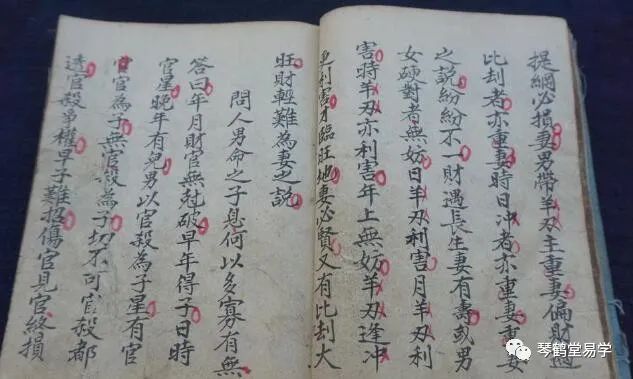 提綱必損妻男帶羊刃主重妻偏財遇
比刦者亦重妻時日冲者亦重妻重妻
之説紛紛不一財遇長生妻有壽或男
女硬對者無妨日羊刃利害月羊刃利
害時羊刃亦利害年上無妨羊刃逢冲
更利害財臨旺地妻必賢又有比刦大
旺財輕難為妻之説
問人男命之子息何以多寡有無
答曰年月財官無尅破早年得子日時
官星晚年有兒男以官殺為子星有官
官為子無官殺為子切不可官殺都
透官殺爭權早子難招傷官見官終損
琴鹤堂易学